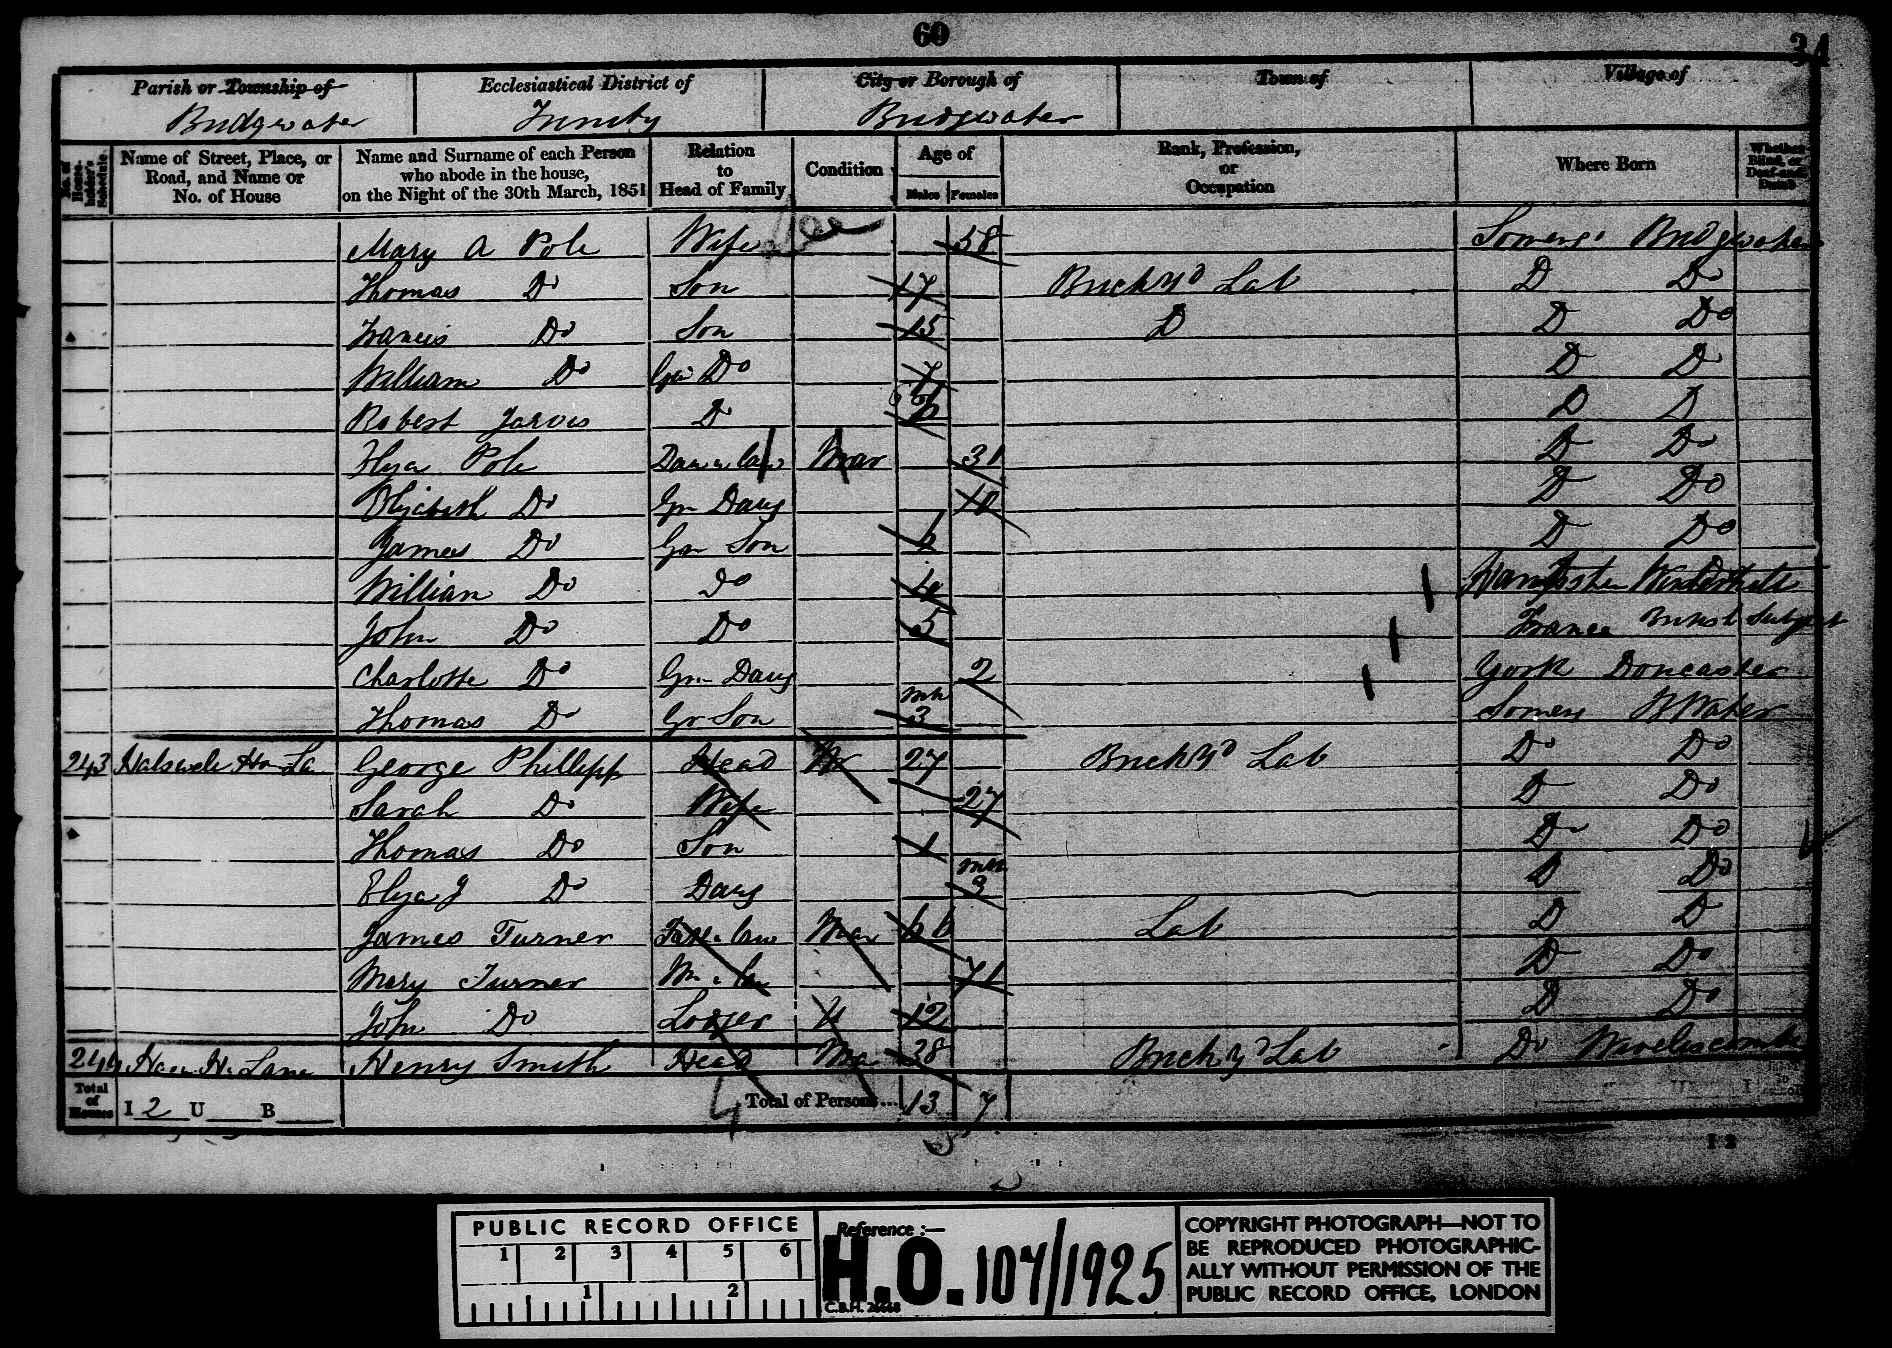 60
34
Parish or Township of Ecclesiastical District of City or Borough of Town of Village of
Bridgwater Trinity Bridgwater
No. of House-holder's Schedule
Name of Street, Place, or Road, and Name or No. of House
Name and Surname of each Person who abode in the house, on the Night of the 30th March, 1851
Relation to Head of Family
Condition
Age of
Males Females
Rank, Profession, or Occupation
Where Born
Whether Blind, or Deaf-and-Dumb
Mary A Pole Wife 58 Somers. Bridgwater
Thomas Do Son 17 Brick Yd Lab D Do
Francis Do Son 15 D D Do
William Do Do 7 D D
Robert Jarvis D D D
Elyza Pole Dau in law Mar 31 D Do
Elizabeth Do Gn Daug 10 D Do
James Do Gn Son D Do
William Do Do Hampshire
John Do Do 5 France British Subject
Charlotte Do Gn Daug 2 York Doncaster
Thomas Do Gr Son mn 3 Somers BWater
243 Halswell Ho La George Phillipp Head Mr 27 Brick Yd Lab Do Do
Sarah Do Wife 27 D Do
Thomas Do Son 1 Do Do
Elyza J Do Daug mn 3 D Do
James Turner Far in law Mar 66 Lab D D
Mary Turner M in law 71 D Do
John Do Lodger U 12 D Do
244 Ho Lane Henry Smith Head Mar 38 Brick Yd Lab Do Wiveliscombe
Total of Houses I 2 U B Total of Persons... 13 7
I 2
PUBLIC RECORD OFFICE
1 2 3 4 5 6
1 2
Reference :—
H.O. 107/1925
C.B.H. 26668
COPYRIGHT PHOTOGRAPH—NOT TO
BE REPRODUCED PHOTOGRAPHIC-
ALLY WITHOUT PERMISSION OF THE
PUBLIC RECORD OFFICE, LONDON